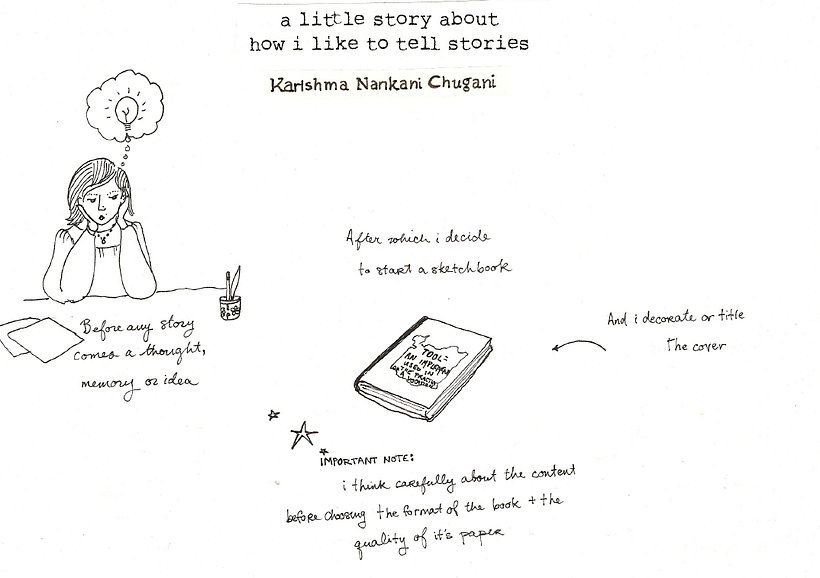 a little story about
how i like to tell stories
Karishma Nankani Chugani
Before any story
comes a thought,
memory or idea
After which i decide
to start a sketchbook
TOOL=
AN IMPORTANT
USED IN
THE PRACTICE
And i decorate or title
the cover
IMPORTANT NOTE:
i think carefully about the content
before choosing the format of the book + the
quality of it's paper